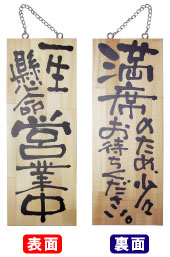 一生
懸命
営業中
満席
のため、少々
お待ちください。
表面
裏面